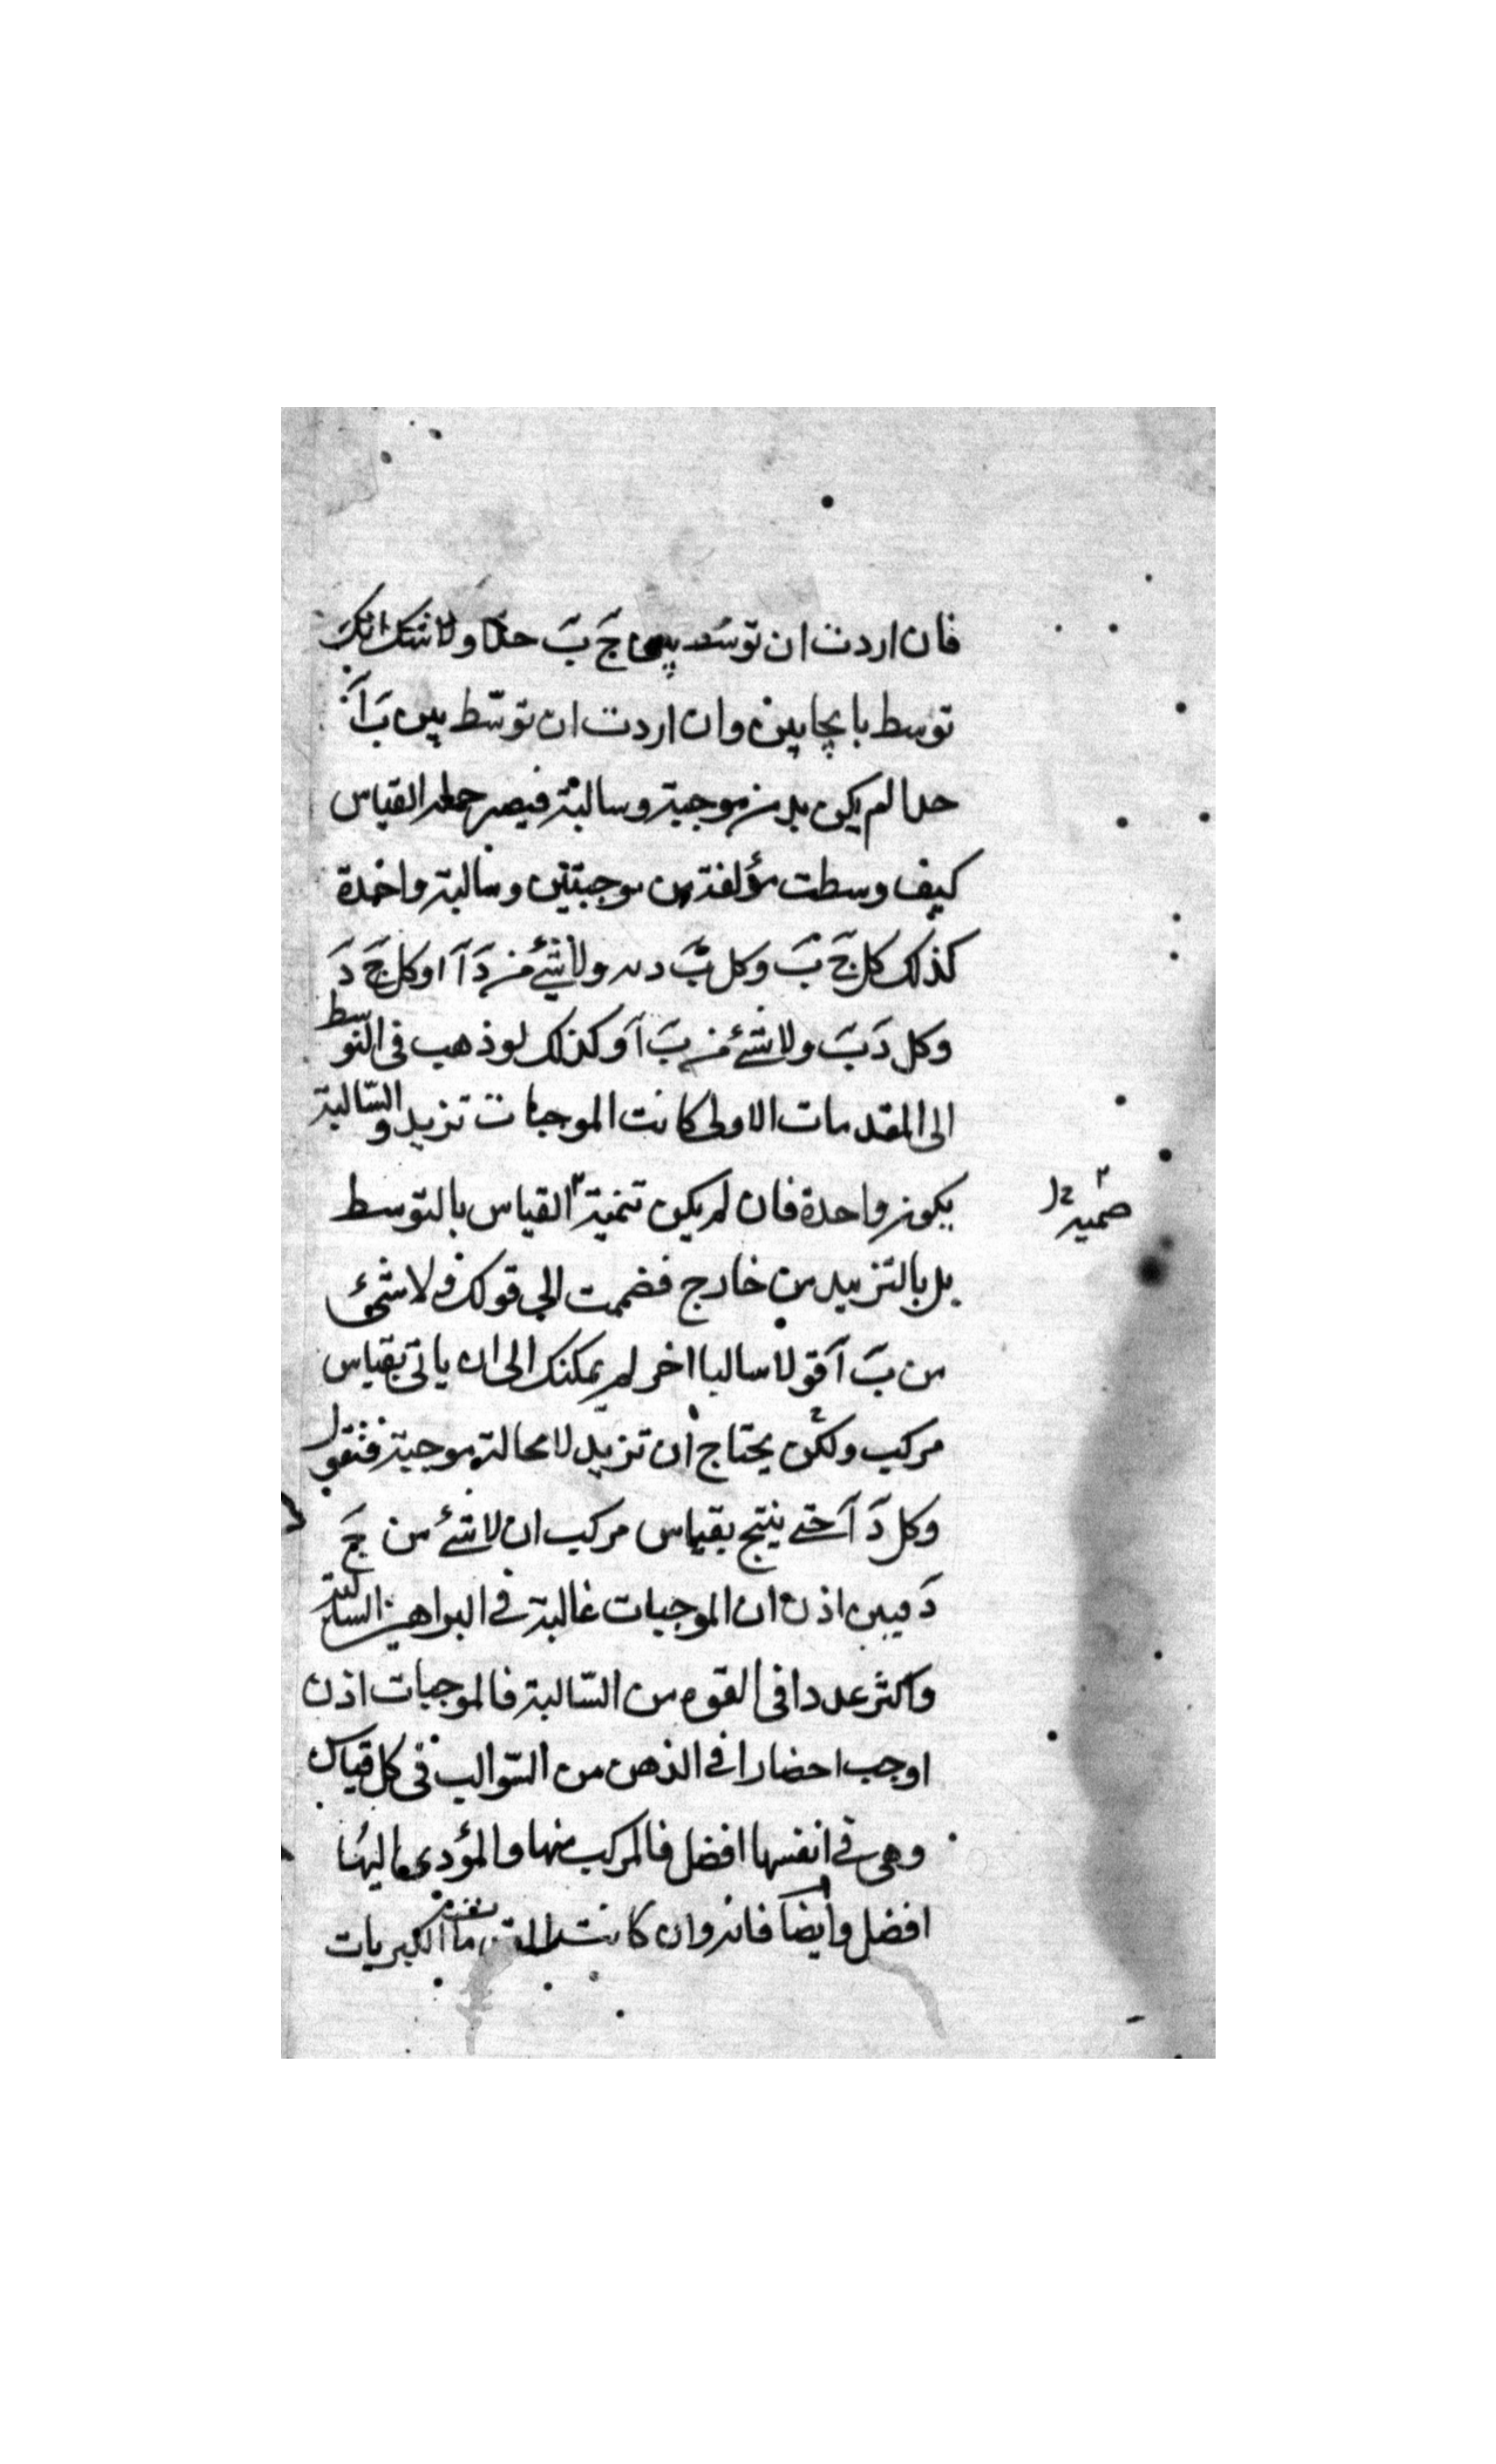 فان اردت ان توسد بين ج ب حدا ولا شك انك
توسط بايجابين وان اردت ان توسّط بين ب آ
حدا لم يكن بد من موجبة وسالبة فيصير جملة القياس
كيف وسطت مؤلفة من موجبتين وسالبة واحدة
كذلك كل ج ب وكل ب د ولا شئ من د آ او كل ج د
وكل د ب ولا شئ من ب آ وكذلك لو ذهب فى التوسط
الى المقدمات الاولى كانت الموجبات تزيد والسّالبة
يكون واحدة فان لم يكن تنمية القياس بالتوسط
بل بالتزييد من خارج فضممت الى قولك ولا شئ
من ب آ قولا سالبا اخر لم يمكنك الى ان ياتى بقياس
مركب ولكن يحتاج ان تزيد لا محالة موجبة فنقول
وكل د آ حتى ينتج بقياس مركب ان لا شئ من ج
د فبين اذن ان الموجبات غالبة فى البراهين السالبة
واكثر عددا فى القوم من السّالبة فالموجبات اذن
اوجب احضارا فى الذهن من السّوالب فى كل قياس
وهى فى انفسها افضل فالمركب منها والمؤدى اليها
افضل وايضا فانه وان كانت الكبريات